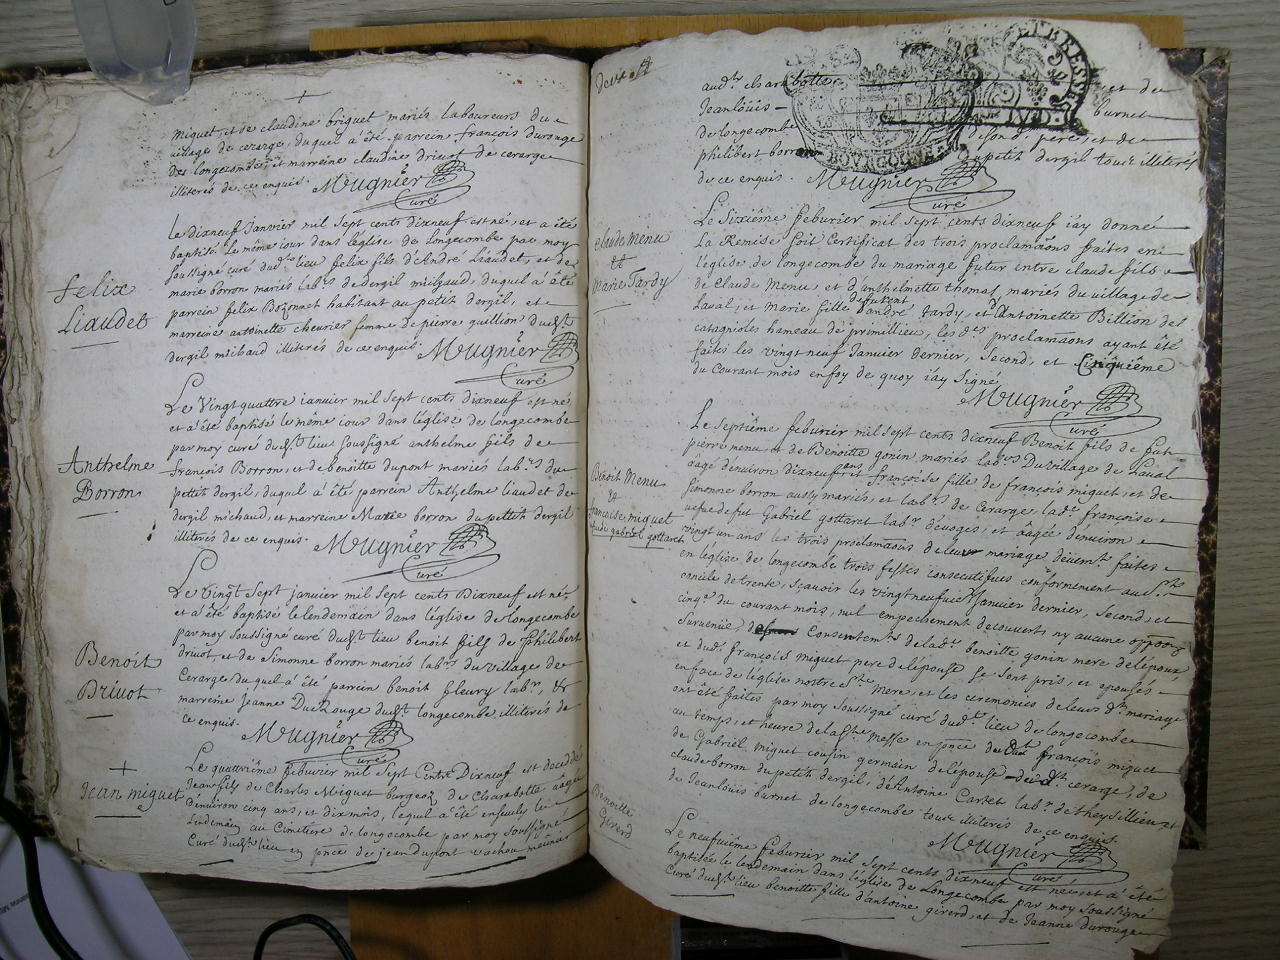 miguet, et de claudine briguet mariés Laboureurs du
village de cerarge, duquel a été parrein françois durouge
des longecombe, et marreine claudine drivot de cerarge
illiterés de ce enquis. Mugnier
Curé
felix
Liaudet
Le dixneuf Janvier mil Sept cents dixneuf est né, et a été
baptisé le même iour dans l'église de Longecombe par moy
soussigné curé dud. lieu felix fils d'André Liaudet, et de
marie borron mariés lab.rs de dergil michaud, duquel a été
parrein felix Bozonet habitant au petit dergil, et
marreine antoinette chevrier femme de pierre guillion dud.
dergil michaud illiterés de ce enquis. Mugnier
Curé
Anthelme
Borron
Le Vingt quattre ianvier mil Sept cents dixneuf est né
et a été baptisé le même iour dans l'église de longecombe
par moy curé dudt lieu soussigné anthelme fils de
françois Borron, et de benoitte dupont mariés lab.rs du
petit dergil, duquel a été parrein Anthelme liaudet de
dergil michaud, et marreine Marie borron du petit dergil
illiterés de ce enquis. Mugnier
Curé
Benoit
Drivot
Le Vingt Sept janvier mil Sept cents Dixneuf est né,
et a été baptisé le lendemain dans l'église de longecombe
par moy soussigné curé dudt lieu benoit fils de Philibert
Drivot, et de Simonne borron mariés lab.rs du village de
Cerarge duquel a été parrein benoit fleury lab.r, &
marreine Jeanne DuRouge dudt longecombe illiterés de
ce enquis. Mugnier
Curé
Jean miguet
Le quattriême feburier mil Sept Cents Dixneuf est decedé
Jean fils de Charles Miguet burgeoz de Charabotte aagé
d'environ cinq ans, et dix mois, lequel a été ensevely le
Lendemain au Cimetiere de longecombe par moy soussigné
Curé dudt lieu en pnce de jean dupont
aud. charabotte et de
Jeanloüis burnet
de longecombe defond. pere, et de
philibert borron du petit dergil tous illiterés
de ce enquis. Mugnier
Curé
BOURGOGNE
ET BRESSE
claude Menu
et
Marie Tardy
Le Sixiême feburier mil Sept cents dixneuf i'ay donné
La Remise soit Certificat des trois proclamaons faites en
l'église de longecombe du mariage futur entre claude fils
de Claude Menu, et d'anthelmette thomas, mariés du village de
Laval, et Marie fille defunt d'andré Tardy, et d'Antoinette Billion de
catagnioles hameau de primillieu, les d.es proclamaons ayant été
faites les vingt neuf Janvier dernier, second, et Cinquiême
du Courant mois en foy de quoy i'ay signé
Mugnier
Curé
Benoit Menu
et
francoise miguet
gabriel gottaret
Le Septiême feburier mil Sept cents dixneuf Benoit fils de fut
pierre menu, et de Benoitte gonin, mariés lab.rs Du village de Laval
aagé d'environ dixneuf ans et françoise fille de françois miguet, et de
Simonne borron aussy mariés, et lab.rs de Cerarge lad. françoise
vefue de fut Gabriel gottaret lab.r d'évoges, et aagée d'environ
vingt un ans les trois proclamaons de leur mariage deüem.t faites
en l'église de longecombe trois festes consecutifues conformement au St
concile de trente, sçauoir les vingt neufuie Janvier dernier, Second, et
cinq.e du courant mois, nul empechement decouvert, ny aucune oppoon
Survenüe, Consentem.ts de lad. benoitte gonin mere de lépoux
et dud. françois Miguet pere de lépouse se sont pris, et epousés
en face de l'église nostre Ste Mere, et les ceremonies de leur dt mariage
ont été faites par moy soussigné curé dud.t lieu de longecombe
au temps, et heure de la Ste Messe en pnce dudt françois miguet
de Gabriel Miguet cousin germain de l'epouse cerarge, de
claude borron du petit dergil, d'Antoine Carret lab.r de theysillieu, et
de Jeanloüis burnet de longecombe tous illiterés de ce enquis.
Mugnier
Curé
Benoitte
Girerd
Le neufuiême feburier mil Sept cents dixneuf est née, et a été
baptisée le lendemain dans l'église de Longecombe par moy soussigné
Curé dudt lieu benoitte fille d'antoine girerd, et de Jeanne durouge